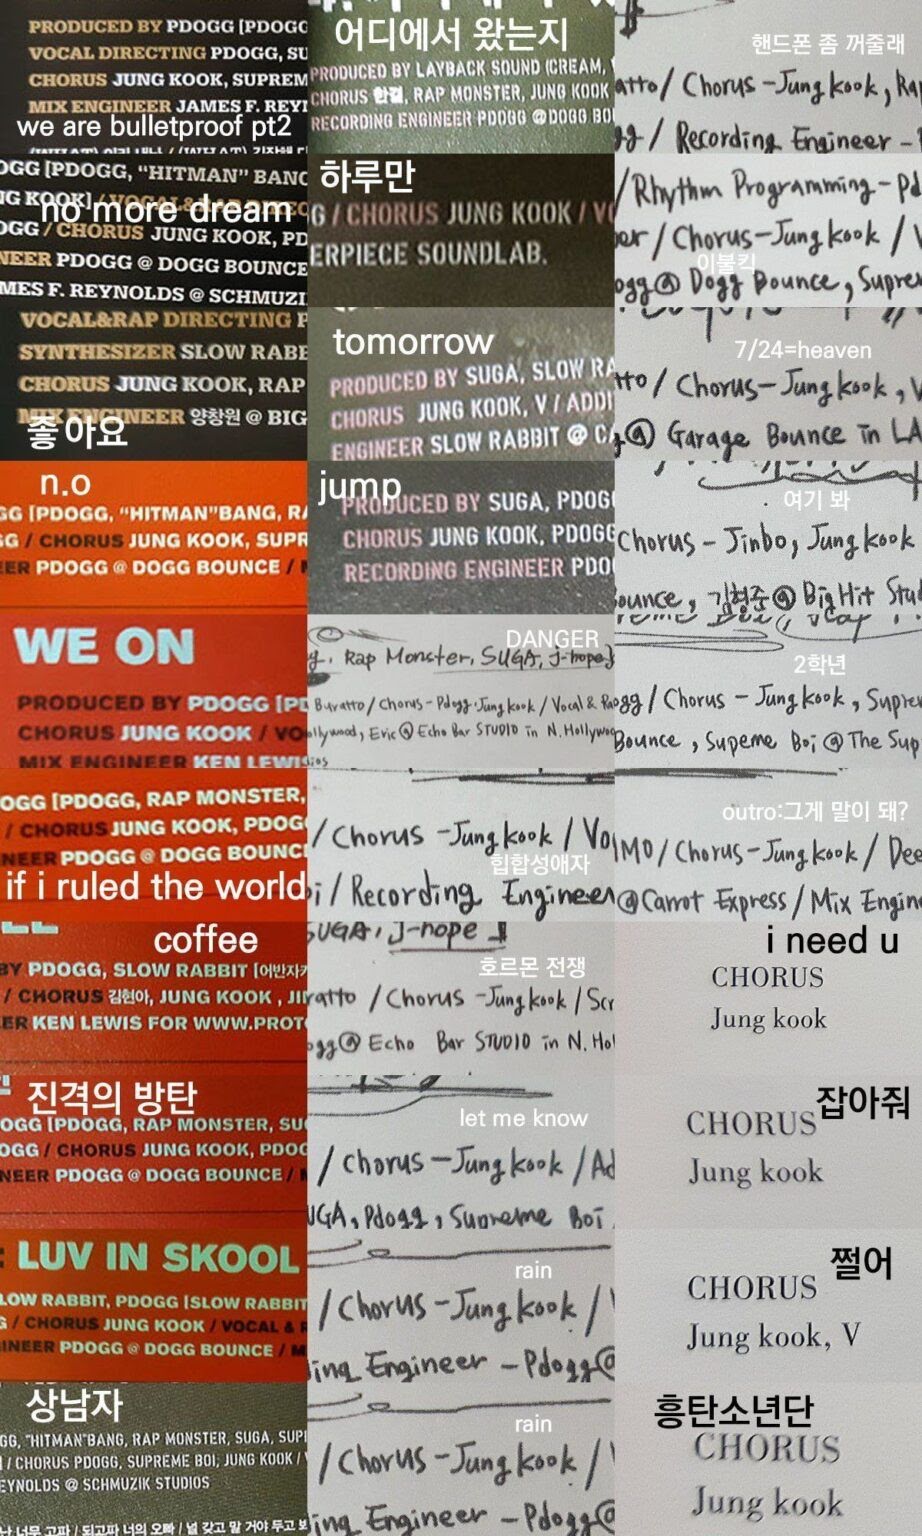 PRODUCED BY PDOGG [PDOGG
VOCAL DIRECTING PDOGG, SU
CHORUS JUNG KOOK, SUPREM
MIX ENGINEER JAMES F. REY
we are bulletproof pt2
OGG [PDOGG, "HITMAN" BANG
NG KOOK] / VOCAL&
no more dream
OGG / CHORUS JUNG KOOK, PD
NEER PDOGG @ DOGG BOUNCE
MES F. REYNOLDS @ SCHMUZI
VOCAL&RAP DIRECTING P
SYNTHESIZER SLOW RABB
CHORUS JUNG KOOK, RAP
MIX ENGINEER 양창원 @ BIG
좋아요
n.o
GG [PDOGG, "HITMAN"BANG, RA
GG / CHORUS JUNG KOOK, SUPR
EER PDOGG @ DOGG BOUNCE / M
WE ON
PRODUCED BY PDOGG [PD
CHORUS JUNG KOOK / VO
MIX ENGINEER KEN LEWIS
OGG [PDOGG, RAP MONSTER,
/ CHORUS JUNG KOOK, PDOG
NEER PDOGG @ DOGG BOUNC
if i ruled the world
coffee
BY PDOGG, SLOW RABBIT [어반자카
/ CHORUS 김현아, JUNG KOOK , JI
ER KEN LEWIS FOR WWW.PROTO
진격의 방탄
OGG [PDOGG, RAP MONSTER, SU
OGG / CHORUS JUNG KOOK, PDOG
NEER PDOGG @ DOGG BOUNCE / M
: LUV IN SKOOL
LOW RABBIT, PDOGG [SLOW RABBIT
G / CHORUS JUNG KOOK / VOCAL & R
INEER PDOGG @ DOGG BOUNCE / M
상남자
GG, "HITMAN"BANG, RAP MONSTER, SUGA, SUP
/ CHORUS PDOGG, SUPREME BOI, JUNG KOOK /
EYNOLDS @ SCHMUZIK STUDIOS
난 너무 고파 / 되고파 너의 오빠 / 널 갖고 말 거야 두고 보
어디에서 왔는지
PRODUCED BY LAYBACK SOUND (CREAM,
CHORUS 한결, RAP MONSTER, JUNG KOOK
RECORDING ENGINEER PDOGG @DOGG BO
하루만
G / CHORUS JUNG KOOK / VO
ERPIECE SOUNDLAB.
tomorrow
PRODUCED BY SUGA, SLOW RA
CHORUS JUNG KOOK, V / ADDI
ENGINEER SLOW RABBIT @ CA
jump
PRODUCED BY SUGA, PDOG
CHORUS JUNG KOOK, PDOGG
RECORDING ENGINEER PDO
DANGER
g, Rap Monster, SUGA, j-hope]
Buratto/Chorus-Pdogg.Jungkook/Vocal & Ra
ollywood, Eric@Echo Bar STUDIO in N.Hollywoo
ios
/ Chorus -Jungkook / Vo
힙합성애자
oi/Recording Engineer
SUGA, j-hope
호르몬 전쟁
ratto /Chorus -Jungkook /Scr
ogg@ Echo Bar STUDIO in N. Ho
let me know
/ Chorus -Jungkook / Ad
UGA, Pdogg, Supreme Boi
rain
/ Chorus -Jungkook /
ing Engineer -Pdogg@
rain
/ Chorus -Jungkook /
ing Engineer -Pdogg@
핸드폰 좀 꺼줄래
atto/ Chorus -Jungkook, Rap
gg/ Recording Engineer -
/Rhythm Programming-Pd
er/ Chorus-Jungkook / V
이불킥
ogg@ Dogg Bounce, Supre
7/24=heaven
tto/ Chorus-Jungkook, V
@ Garage Bounce in LA
여기 봐
Chorus - Jinbo, Jungkook
Bounce, 김형준@ BigHit Stud
2학년
ogg/ Chorus - Jungkook, Supre
Bounce, Supeme Boi @ The Sup
outro:그게 말이 돼?
IMO/Chorus-Jungkook / Dee
@Carrot Express/ Mix Engin
i need u
CHORUS
Jung kook
잡아줘
CHORUS
Jung kook
쩔어
CHORUS
Jung kook, V
흥탄소년단
CHORUS
Jung kook